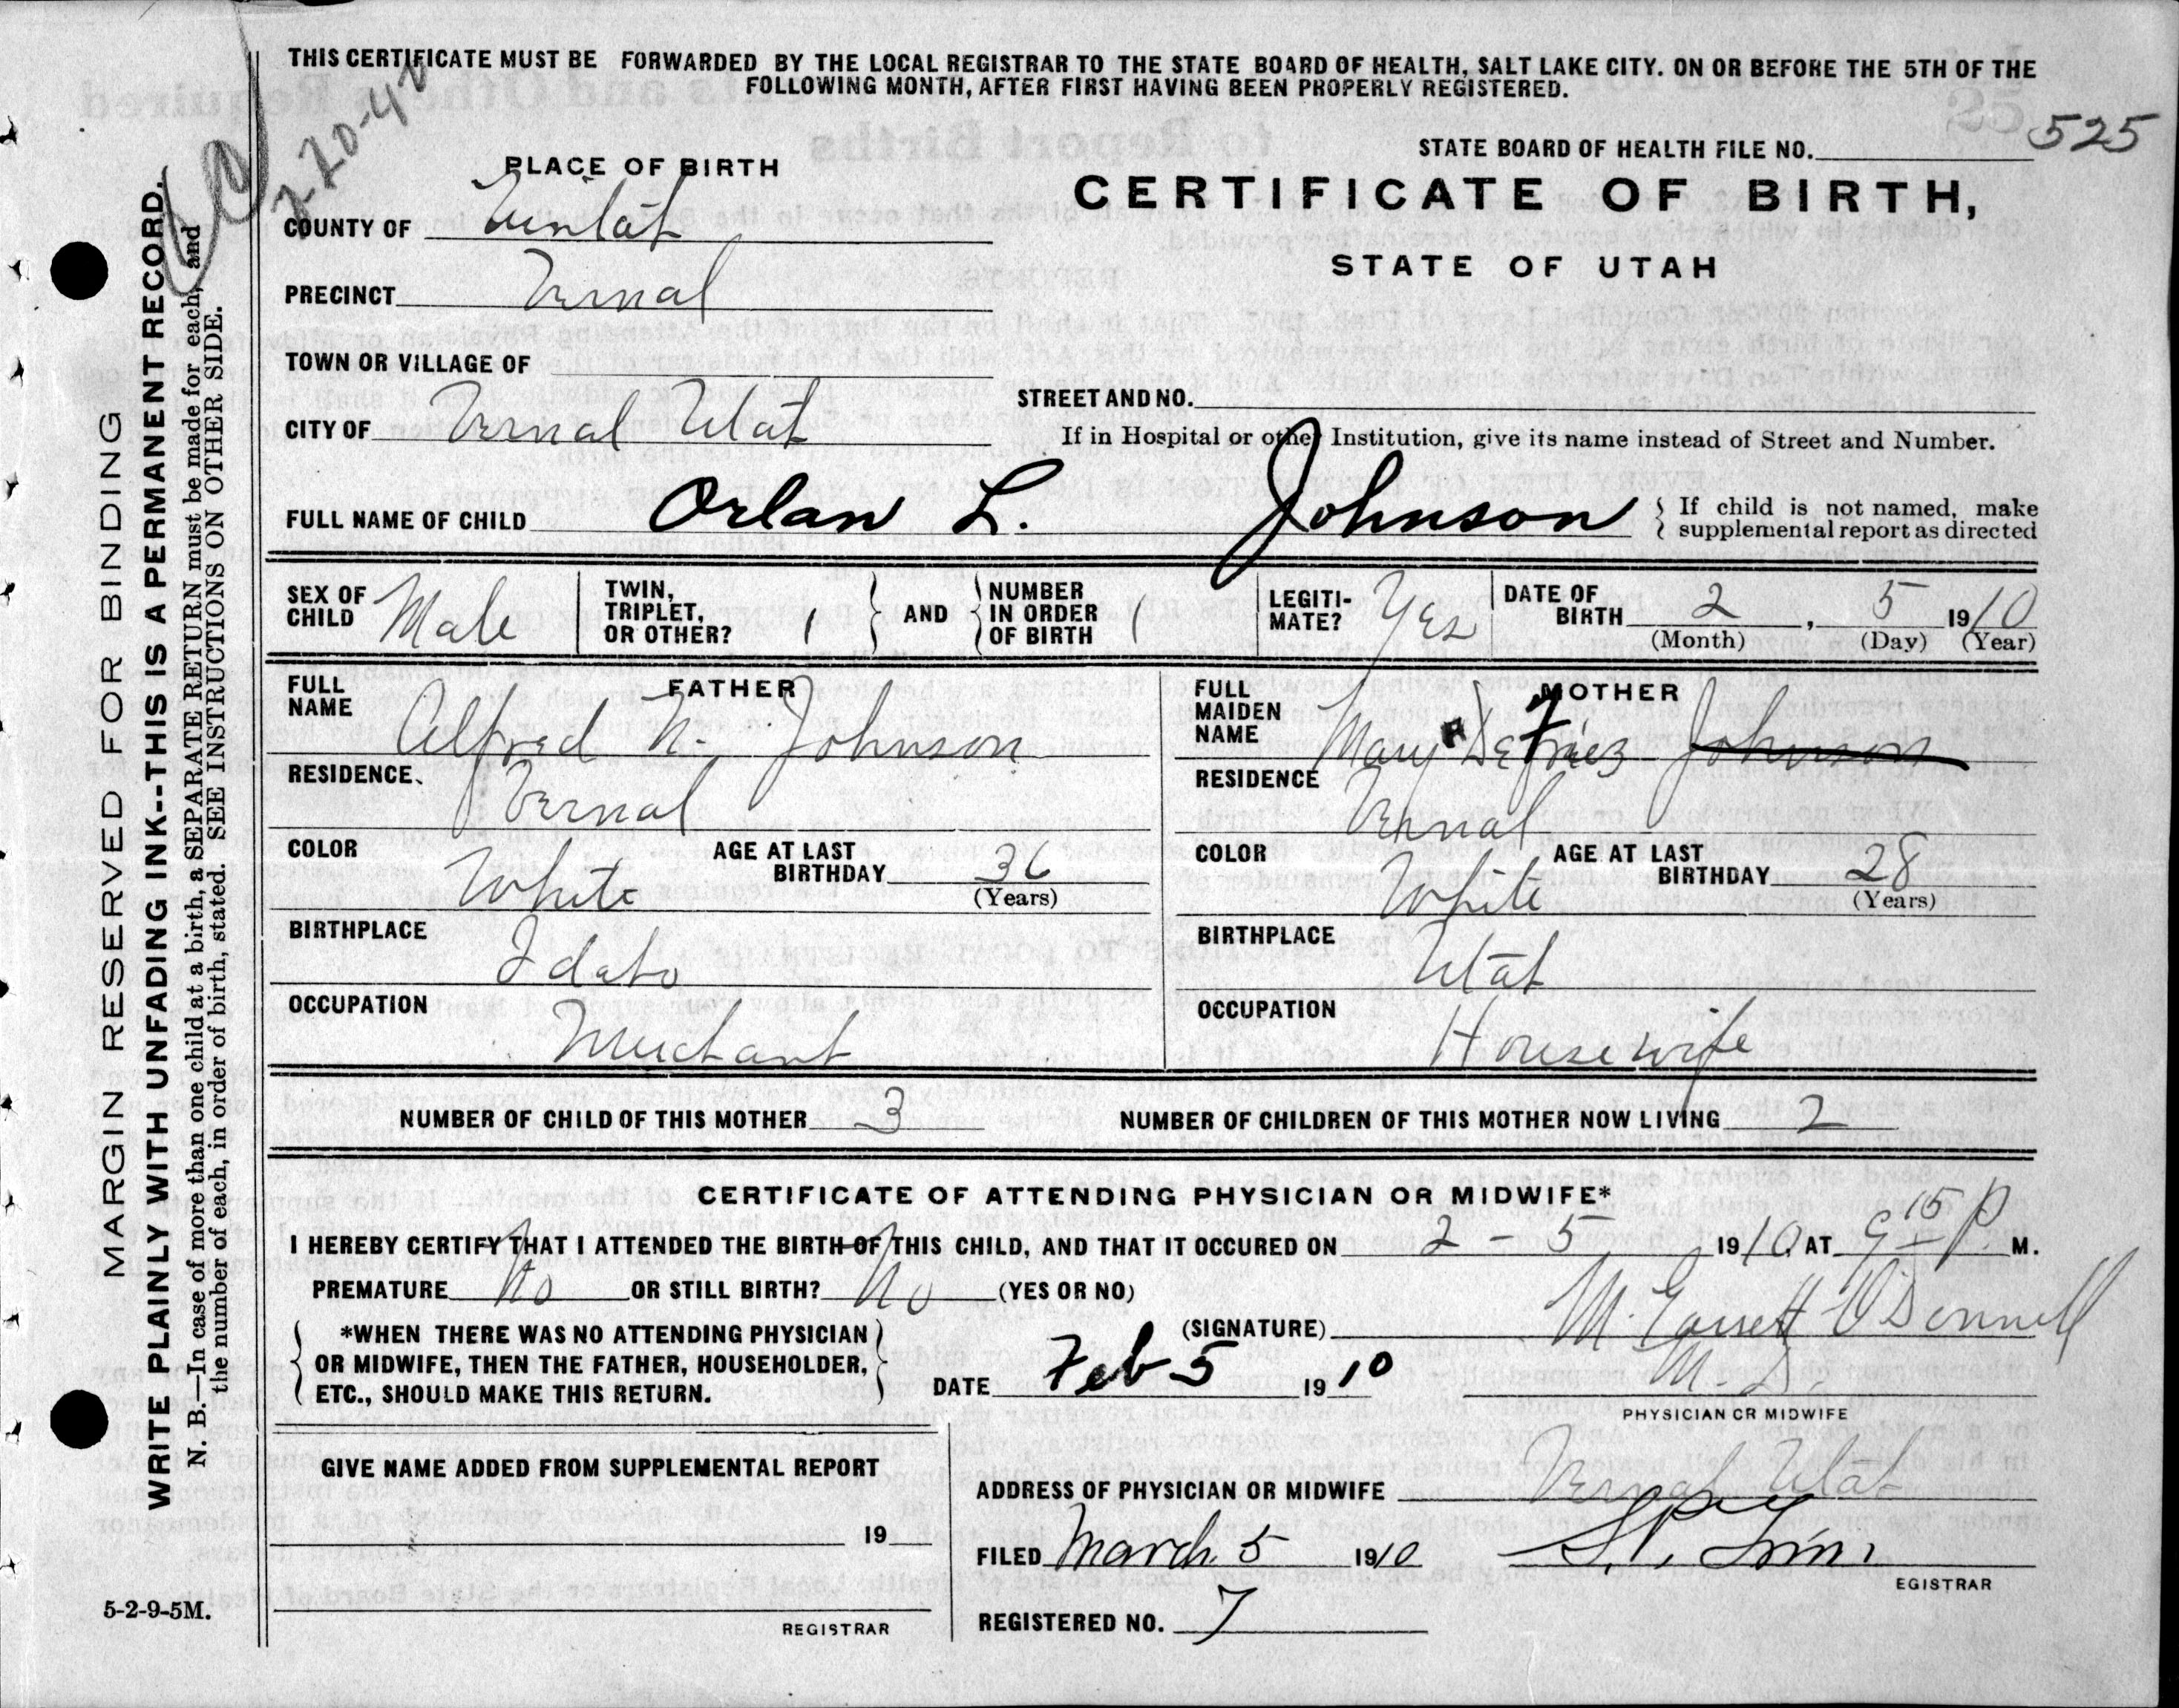 THIS CERTIFICATE MUST BE FORWARDED BY THE LOCAL REGISTRAR TO THE STATE BOARD OF HEALTH, SALT LAKE CITY. ON OR BEFORE THE 5TH OF THE
FOLLOWING MONTH, AFTER FIRST HAVING BEEN PROPERLY REGISTERED.
2-20-42
STATE BOARD OF HEALTH FILE NO. 525
CERTIFICATE OF BIRTH,
STATE OF UTAH
PLACE OF BIRTH
COUNTY OF Uintah
PRECINCT Vernal
TOWN OR VILLAGE OF
CITY OF Vernal Utah
STREET AND NO.
If in Hospital or other Institution, give its name instead of Street and Number.
FULL NAME OF CHILD Orlan L. Johnson
If child is not named, make
supplemental report as directed
SEX OF CHILD Male
TWIN, TRIPLET, OR OTHER? 1
AND NUMBER IN ORDER OF BIRTH 1
LEGITI-MATE? Yes
DATE OF BIRTH 2, 5 1910
(Month) (Day) (Year)
FATHER
FULL NAME Alfred N. Johnson
RESIDENCE Vernal
COLOR White
AGE AT LAST BIRTHDAY 36
(Years)
BIRTHPLACE Idaho
OCCUPATION Merchant
MOTHER
FULL MAIDEN NAME Mary H DeFriez Johnson
RESIDENCE Vernal
COLOR White
AGE AT LAST BIRTHDAY 28
(Years)
BIRTHPLACE Utah
OCCUPATION Housewife
NUMBER OF CHILD OF THIS MOTHER 3
NUMBER OF CHILDREN OF THIS MOTHER NOW LIVING 2
CERTIFICATE OF ATTENDING PHYSICIAN OR MIDWIFE*
I HEREBY CERTIFY THAT I ATTENDED THE BIRTH OF THIS CHILD, AND THAT IT OCCURED ON 2 - 5 1910, AT 9 15 P M.
PREMATURE No OR STILL BIRTH? No (YES OR NO)
*WHEN THERE WAS NO ATTENDING PHYSICIAN
OR MIDWIFE, THEN THE FATHER, HOUSEHOLDER,
ETC., SHOULD MAKE THIS RETURN.
(SIGNATURE) M. Garrett O'Donnell
M. D.
PHYSICIAN OR MIDWIFE
DATE Feb 5 1910
GIVE NAME ADDED FROM SUPPLEMENTAL REPORT
19
REGISTRAR
ADDRESS OF PHYSICIAN OR MIDWIFE Vernal Utah
FILED March 5 1910
EGISTRAR
REGISTERED NO. 7
5-2-9-5M.
MARGIN RESERVED FOR BINDING
WRITE PLAINLY WITH UNFADING INK--THIS IS A PERMANENT RECORD.
N. B.—In case of more than one child at a birth, a SEPARATE RETURN must be made for each, and
the number of each, in order of birth, stated. SEE INSTRUCTIONS ON OTHER SIDE.